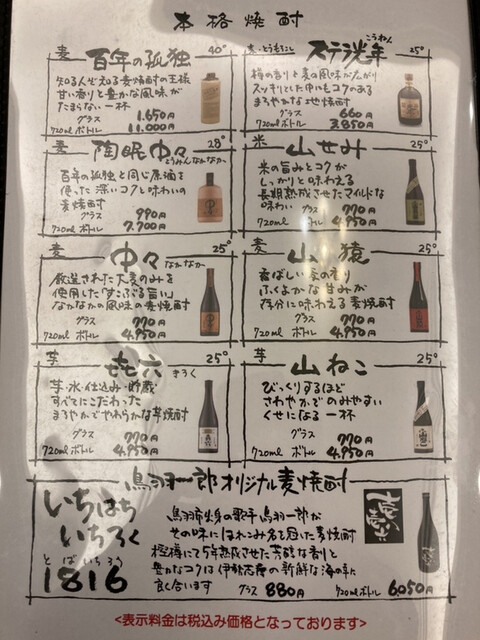 本格焼酎
麦 百年の孤独 40°
知る人ぞ知る麦焼酎の王様
甘い香りと豊かな風味が
たまらない一杯
グラス 1,650円
720mlボトル 11,000円
麦・とうもろこし ステラ光年 こうねん 25°
樽の香りと麦の風味が広がり
スッキリとした中にもコクのある
まろやかな地焼酎
グラス 660円
720mlボトル 3,850円
麦 陶眠中々 とうみんなかなか 28°
百年の孤独と同じ原酒を
使った深いコクと味わいの
麦焼酎
グラス 990円
720mlボトル 7,700円
米 山せみ 25°
米の旨みとコクが
しっかりと味わえる
長期熟成させたマイルドな
味わい グラス 770円
720mlボトル 4,950円
麦 中々 なかなか 25°
厳選された大麦のみを
使用した「すこぶる旨い」
なかなかの風味の麦焼酎
グラス 770円
720mlボトル 4,950円
麦 山猿 25°
香ばしい麦の香り
ふくよかな甘みが
存分に味わえる麦焼酎
グラス 770円
720mlボトル 4,950円
芋 㐂六 きろく 25°
芋・水・仕込み・貯蔵
すべてにこだわった
まろやかでやわらかな芋焼酎
グラス 770円
720mlボトル 4,950円
芋 山ねこ 25°
びっくりするほど
さわやかでのみやすい
くせになる一杯
グラス 770円
720mlボトル 4,950円
鳥羽一郎オリジナル麦焼酎
いちはち
いちろく
とばいちろう
1816
鳥羽市出身の歌手鳥羽一郎が
その味にほれこみ名を冠た麦焼酎
樫樽にて5年熟成させた芳醇な香りと
豊かなコクは伊勢志摩の新鮮な海の幸に
良く合います グラス 880円 720mlボトル 6,050円
<表示料金は税込み価格となっております>